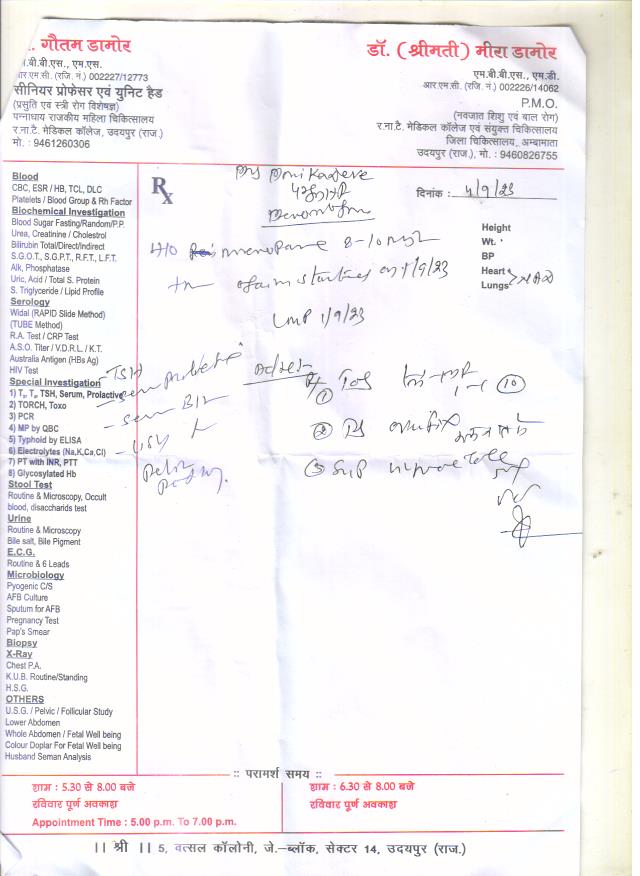 . गौतम डामोर
.बी.बी.एस., एम.एस.
आर.एम.सी. (रजि. नं.) 002227/12773
सीनियर प्रोफेसर एवं युनिट हैड
(प्रसुति एवं स्त्री रोग विशेषज्ञ)
पन्नाधाय राजकीय महिला चिकित्सालय
र.ना.टै. मेडिकल कॉलेज, उदयपुर (राज.)
मो. : 9461260306
डॉ. (श्रीमती) मीरा डामोर
एम.बी.बी.एस., एम.डी.
आर.एम.सी. (रजि. नं.) 002226/14062
P.M.O.
(नवजात शिशु एवं बाल रोग)
र.ना.टै. मेडिकल कॉलेज एवं संयुक्त चिकित्सालय
जिला चिकित्सालय, अम्बामाता
उदयपुर (राज.), मो. : 9460826755
Blood
CBC, ESR / HB, TCL, DLC
Platelets / Blood Group & Rh Factor
Biochemical Investigation
Blood Sugar Fasting/Random/P.P.
Urea, Creatinine / Cholestrol
Bilirubin Total/Direct/Indirect
S.G.O.T., S.G.P.T., R.F.T., L.F.T.
Alk, Phosphatase
Uric, Acid / Total S. Protein
S. Triglyceride / Lipid Profile
Serology
Widal (RAPID Slide Method)
(TUBE Method)
R.A. Test / CRP Test
A.S.O. Titer / V.D.R.L. / K.T.
Australia Antigen (HBs Ag)
HIV Test
Special Investigation
1) T₃, T₄, TSH, Serum, Prolactive
2) TORCH, Toxo
3) PCR
4) MP by QBC
5) Typhoid by ELISA
6) Electrolytes (Na,K,Ca,Cl)
7) PT with INR, PTT
8) Glycosylated Hb
Stool Test
Routine & Microscopy, Occult
blood, disaccharids test
Urine
Routine & Microscopy
Bile salt, Bile Pigment
E.C.G.
Routine & 6 Leads
Microbiology
Pyogenic C/S
AFB Culture
Sputum for AFB
Pregnancy Test
Pap's Smear
Biopsy
X-Ray
Chest P.A.
K.U.B. Routine/Standing
H.S.G.
OTHERS
U.S.G. / Pelvic / Follicular Study
Lower Abdomen
Whole Abdomen / Fetal Well being
Colour Doplar For Fetal Well being
Husband Seman Analysis
Rx
दिनांक : 4/9/23
Height
Wt.
BP
Heart
Lungs
H/O menopause 8-10
started on 1/9/23
LMP 1/9/23
TSH
① 10
②
③
:: परामर्श समय ::
शाम : 5.30 से 8.00 बजे
रविवार पूर्ण अवकाश
Appointment Time : 5.00 p.m. To 7.00 p.m.
शाम : 6.30 से 8.00 बजे
रविवार पूर्ण अवकाश
।। श्री ।। 5, वत्सल कॉलोनी, जे.–ब्लॉक, सेक्टर 14, उदयपुर (राज.)